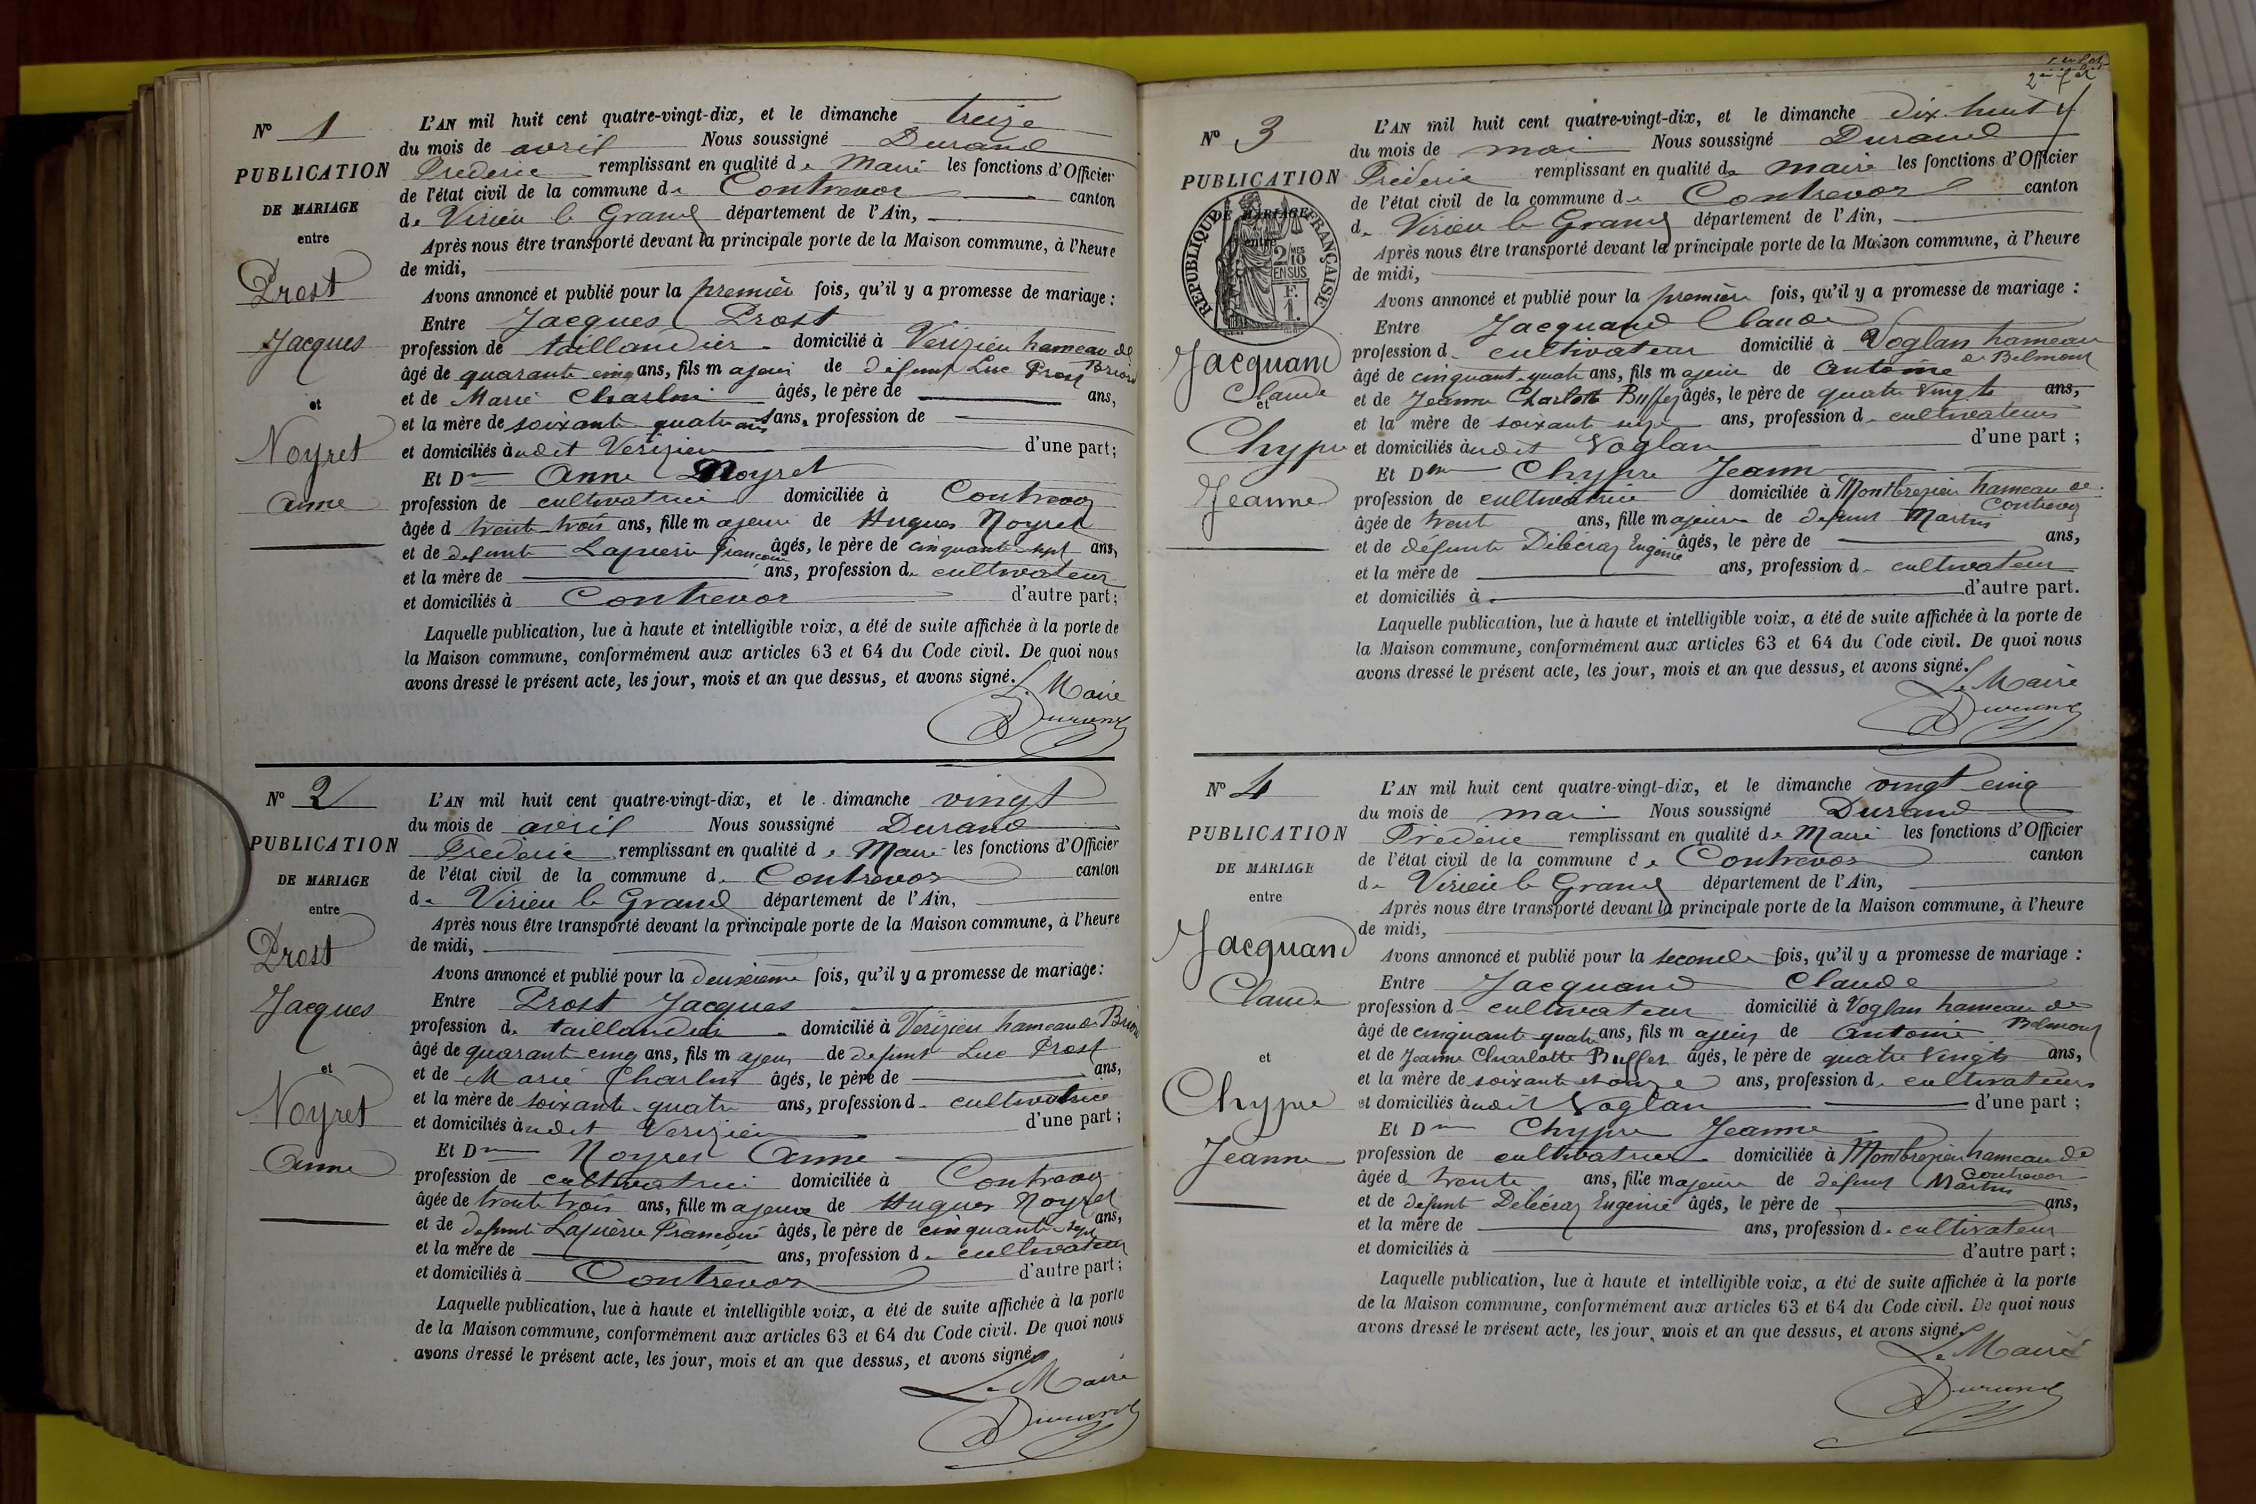 N° 1
PUBLICATION
DE MARIAGE
entre
Prost
Jacques
et
Noyret
Anne
L'AN mil huit cent quatre-vingt-dix, et le dimanche treize
du mois de avril Nous soussigné Durand
Frederic remplissant en qualité de Maire les fonctions d'Officier
de l'état civil de la commune de Contrevoz canton
de Virieu le Grand département de l'Ain,
Après nous être transporté devant la principale porte de la Maison commune, à l'heure
de midi,
Avons annoncé et publié pour la première fois, qu'il y a promesse de mariage :
Entre Jacques Prost
profession de taillandier domicilié à Vérizieu hameau de
Briord
âgé de quarante cinq ans, fils majeur de défunt Luc Prost
et de Marie Charlin âgés, le père de ans,
et la mère de soixante quatre ans ans, profession de
et domiciliés audit Vérizieu d'une part;
Et Dlle Anne Noyret
profession de cultivatrice domiciliée à Contrevoz
âgée d trente trois ans, fille majeure de Hugues Noyret
et de defunte Lapierre Françoise âgés, le père de cinquante sept ans,
et la mère de ans, profession de cultivateur
et domiciliés à Contrevoz d'autre part;
Laquelle publication, lue à haute et intelligible voix, a été de suite affichée à la porte de
la Maison commune, conformément aux articles 63 et 64 du Code civil. De quoi nous
avons dressé le présent acte, les jour, mois et an que dessus, et avons signé.
Le Maire
Durand
N° 2
PUBLICATION
DE MARIAGE
entre
Prost
Jacques
et
Noyret
Anne
L'AN mil huit cent quatre-vingt-dix, et le dimanche vingt
du mois de avril Nous soussigné Durand
Frederic remplissant en qualité de Maire les fonctions d'Officier
de l'état civil de la commune de Contrevoz canton
de Virieu le Grand département de l'Ain,
Après nous être transporté devant la principale porte de la Maison commune, à l'heure
de midi,
Avons annoncé et publié pour la deuxieme fois, qu'il y a promesse de mariage :
Entre Prost Jacques
profession de taillandier domicilié à Vérizieu hameau de Briord
âgé de quarante cinq ans, fils majeur de defunt Luc Prost
et de Marie Charlin âgés, le père de ans,
et la mère de soixante quatre ans, profession de cultivatrice
et domiciliés audit Verizieu d'une part ;
Et Dlle Noyret Anne
profession de cultivatrice domiciliée à Contrevoz
âgée de trente trois ans, fille majeure de Hugues Noyret
et de defunte Lapierre Françoise âgés, le père de cinquante sept ans,
et la mère de ans, profession de cultivateur
et domiciliés à Contrevoz d'autre part ;
Laquelle publication, lue à haute et intelligible voix, a été de suite affichée à la porte
de la Maison commune, conformément aux articles 63 et 64 du Code civil. De quoi nous
avons dressé le présent acte, les jour, mois et an que dessus, et avons signé
Le Maire
Durand
N° 3
PUBLICATION
DE MARIAGE
entre
RÉPUBLIQUE FRANÇAISE
2/10 MES
EN SUS
F.
1.
Jacquand
Claude
et
Chypre
Jeanne
L'AN mil huit cent quatre-vingt-dix, et le dimanche dix huit
du mois de mai Nous soussigné Durand
Fréderic remplissant en qualité de maire les fonctions d'Officier
de l'état civil de la commune de Contrevoz canton
de Virieu le Grand département de l'Ain,
Après nous être transporté devant la principale porte de la Maison commune, à l'heure
de midi,
Avons annoncé et publié pour la première fois, qu'il y a promesse de mariage :
Entre Jacquand Claude
profession de cultivateur domicilié à Voglan hameau
de Belmont
âgé de cinquante quatre ans, fils majeur de Antoine
et de Jeanne Charlotte Buffet âgés, le père de quatre vingts ans,
et la mère de soixante ans, profession de cultivateurs
et domiciliés audit Voglan d'une part ;
Et Dlle Chypre Jeanne
profession de cultivatrice domiciliée à Montbrezieu hameau de
Contrevoz
âgée de trente ans, fille majeure de defunt Martin
et de défunte Débécraz Eugénie âgés, le père de ans,
et la mère de ans, profession de cultivateur
et domiciliés à d'autre part.
Laquelle publication, lue à haute et intelligible voix, a été de suite affichée à la porte de
la Maison commune, conformément aux articles 63 et 64 du Code civil. De quoi nous
avons dressé le présent acte, les jour, mois et an que dessus, et avons signé.
Le Maire
Durand
N° 4
PUBLICATION
DE MARIAGE
entre
Jacquand
Claude
et
Chypre
Jeanne
L'AN mil huit cent quatre-vingt-dix, et le dimanche vingt cinq
du mois de mai Nous soussigné Durand
Frederic remplissant en qualité de Maire les fonctions d'Officier
de l'état civil de la commune de Contrevoz canton
de Virieu le Grand département de l'Ain,
Après nous être transporté devant la principale porte de la Maison commune, à l'heure
de midi,
Avons annoncé et publié pour la seconde fois, qu'il y a promesse de mariage :
Entre Jacquand Claude
profession de cultivateur domicilié à Voglan hameau de
Belmont
âgé de cinquante quatre ans, fils majeur de Antoine
et de Jeanne Charlotte Buffet âgés, le père de quatre vingts ans,
et la mère de soixante et onze ans, profession de cultivateurs
et domiciliés audit Voglan d'une part ;
Et Dlle Chypre Jeanne
profession de cultivatrice domiciliée à Montbrezieu hameau de
Contrevoz
âgée d trente ans, fille majeure de defunt Martin
et de defunt Debécraz Eugénie âgés, le père de ans,
et la mère de ans, profession de cultivateur
et domiciliés à d'autre part ;
Laquelle publication, lue à haute et intelligible voix, a été de suite affichée à la porte
de la Maison commune, conformément aux articles 63 et 64 du Code civil. De quoi nous
avons dressé le présent acte, les jour, mois et an que dessus, et avons signé.
Le Maire
Durand